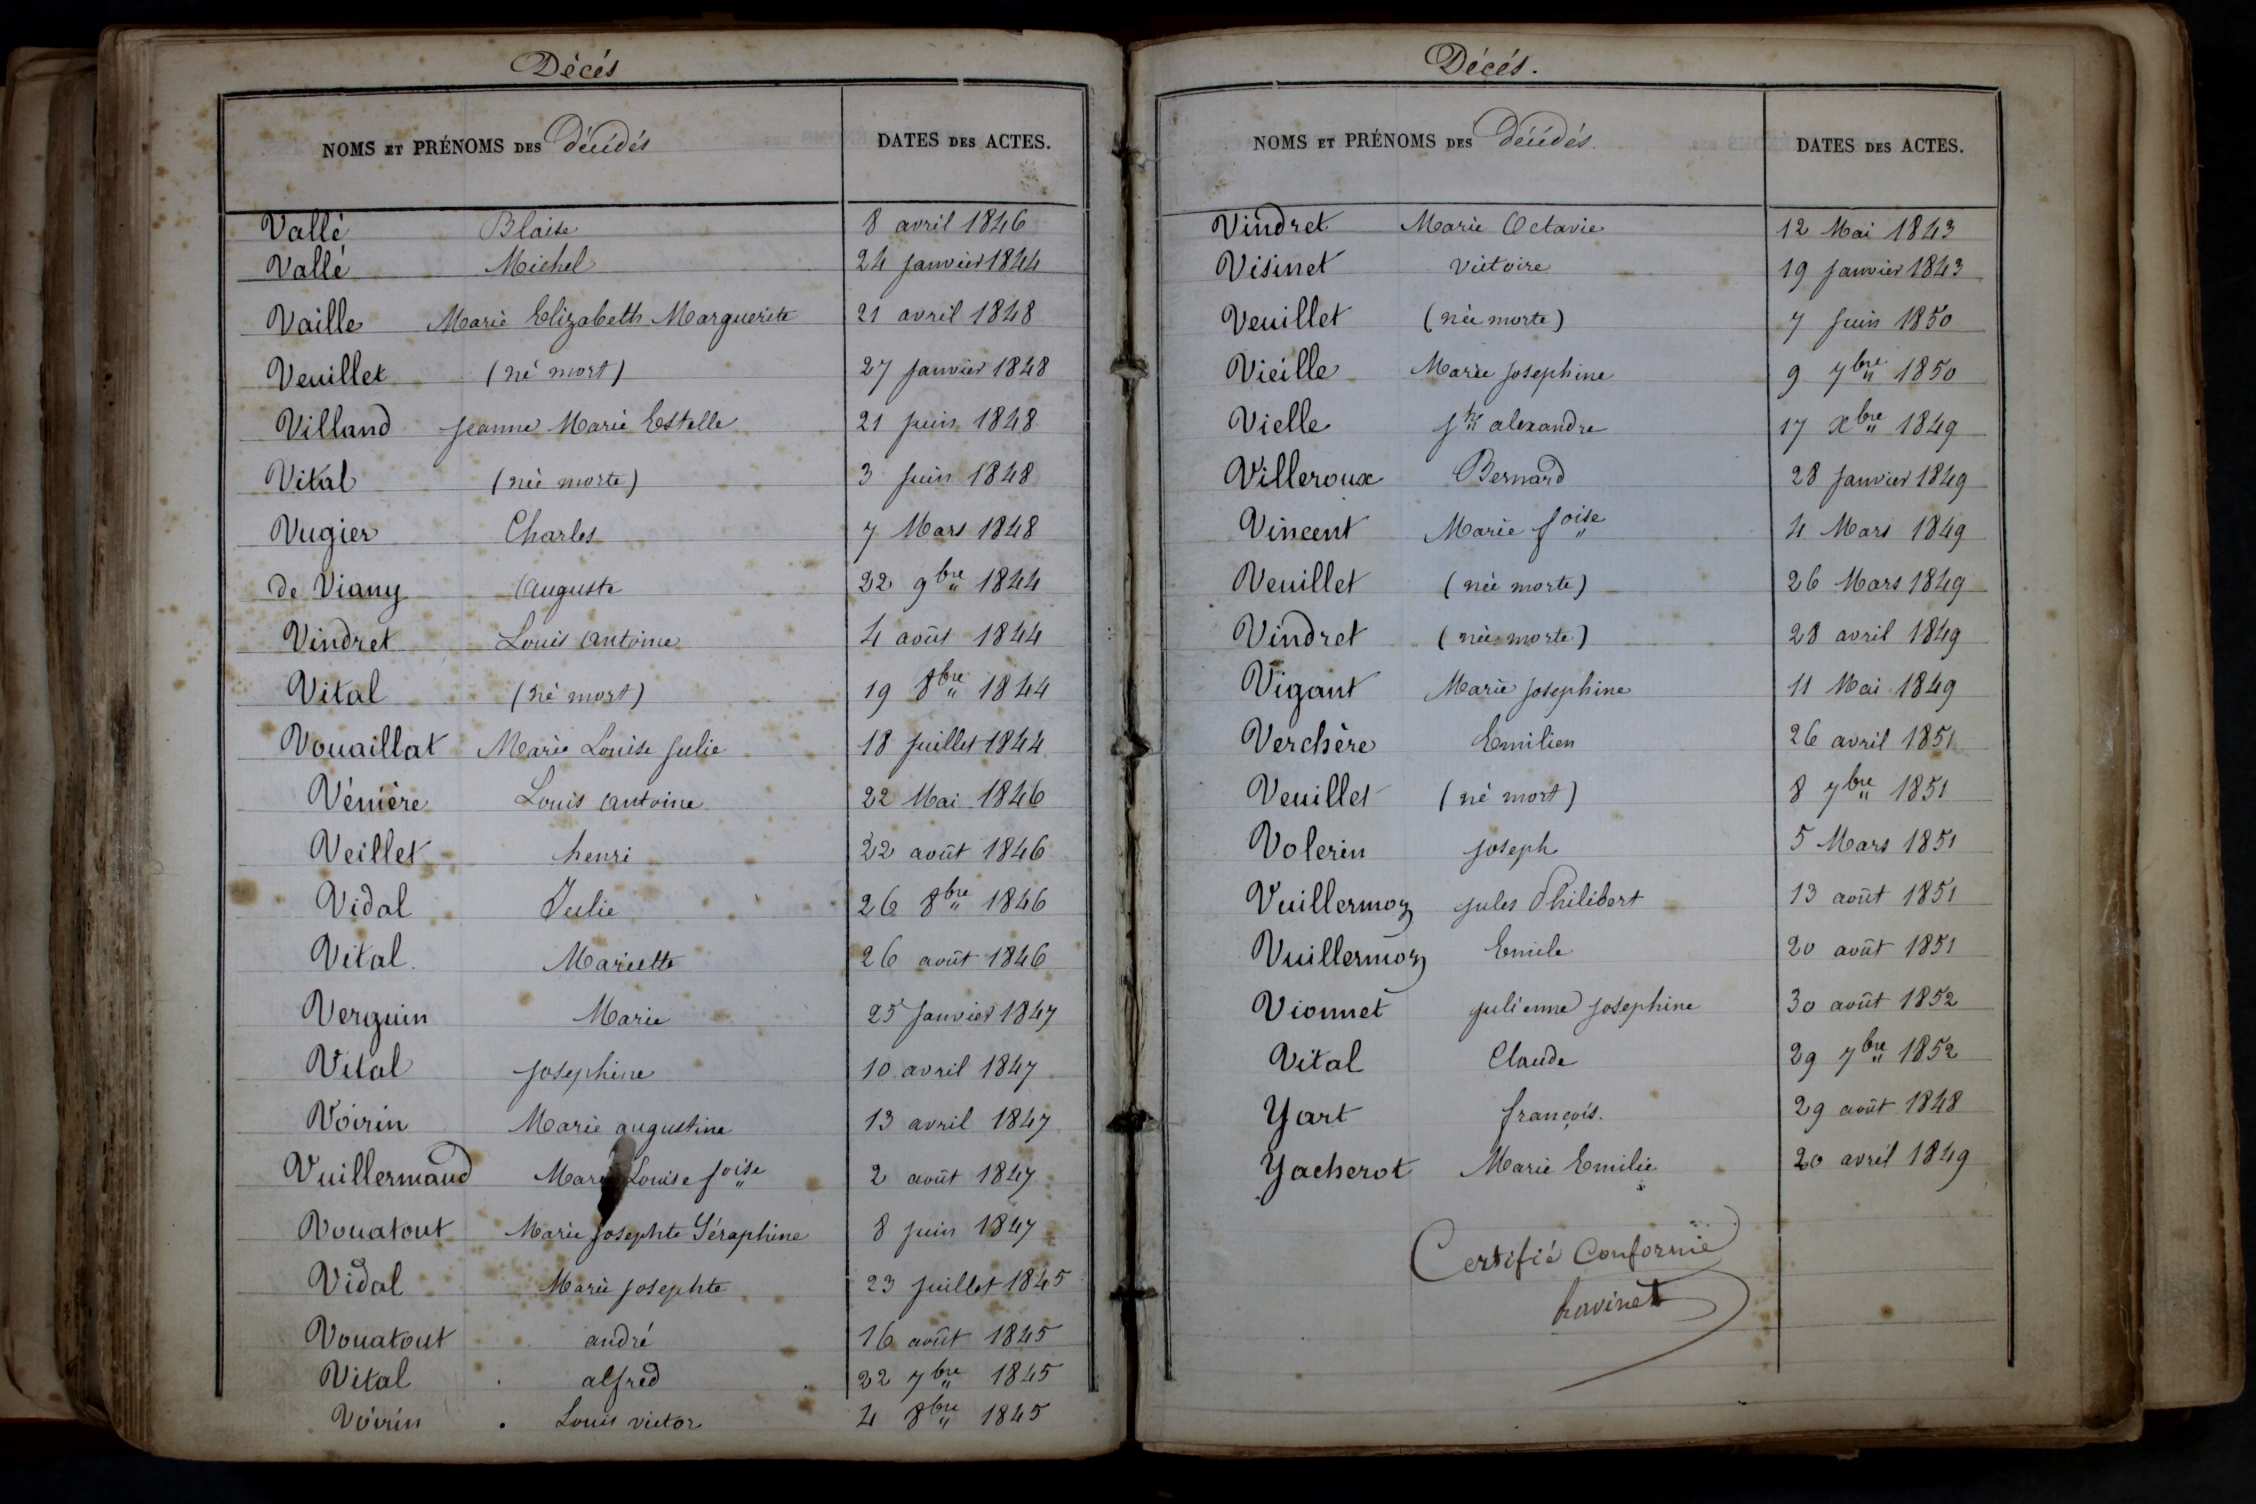 Décés
NOMS ET PRÉNOMS DES Décédés DATES DES ACTES.
Vallé Blaise 8 avril 1846
Vallé Michel 24 janvier 1844
Vaille Marie Elizabeth Marguerite 21 avril 1848
Veuillet (né mort) 27 janvier 1848
Villand Jeanne Marie Estelle 21 juin 1848
Vital (née morte) 3 juin 1848
Vugier Charles 7 Mars 1848
de Viany Auguste 22 9bre 1844
Vindret Louis antoine 4 août 1844
Vital (né mort) 19 8bre 1844
Vouaillat Marie Louise Julie 18 juillet 1844
Vénière Louis antoine 22 Mai 1846
Veillet henri 22 août 1846
Vidal Julie 26 8bre 1846
Vital Mariette 26 août 1846
Verguin Marie 25 Janvier 1847
Vital Josephine 10 avril 1847
Voirin Marie augustine 13 avril 1847
Vuillermaud Marie Louise foise 2 août 1847
Vouatout Marie Josephte Séraphine 8 juin 1847
Vidal Marie Josephte 23 juillet 1845
Vouatout andré 16 août 1845
Vital alfred 22 7bre 1845
Voirin Louis victor 4 8bre 1845
Décés.
NOMS ET PRÉNOMS DES Décédés. DATES DES ACTES.
Vindret Marie Octavie 12 Mai 1843
Visinet Victoire 19 Janvier 1843
Veuillet (née morte) 7 Juin 1850
Vieille Marie Josephine 9 7bre 1850
Vielle alexandre 17 xbre 1849
Villeroux Bernard 28 Janvier 1849
Vincent Marie foise 4 Mars 1849
Veuillet (née morte) 26 Mars 1849
Vindret (née morte) 28 avril 1849
Vigant Marie Josephine 11 Mai 1849
Verchère Emilien 26 avril 1851
Veuillet (né mort) 8 7bre 1851
Volerin Joseph 5 Mars 1851
Vuillermoz Jules Philibert 13 août 1851
Vuillermoz Emile 20 août 1851
Vionnet Julienne Josephine 30 août 1852
Vital Claude 29 7bre 1852
Yart françois. 29 août 1848
Yacherot Marie Emilie 20 avril 1849
Certifié Conforme